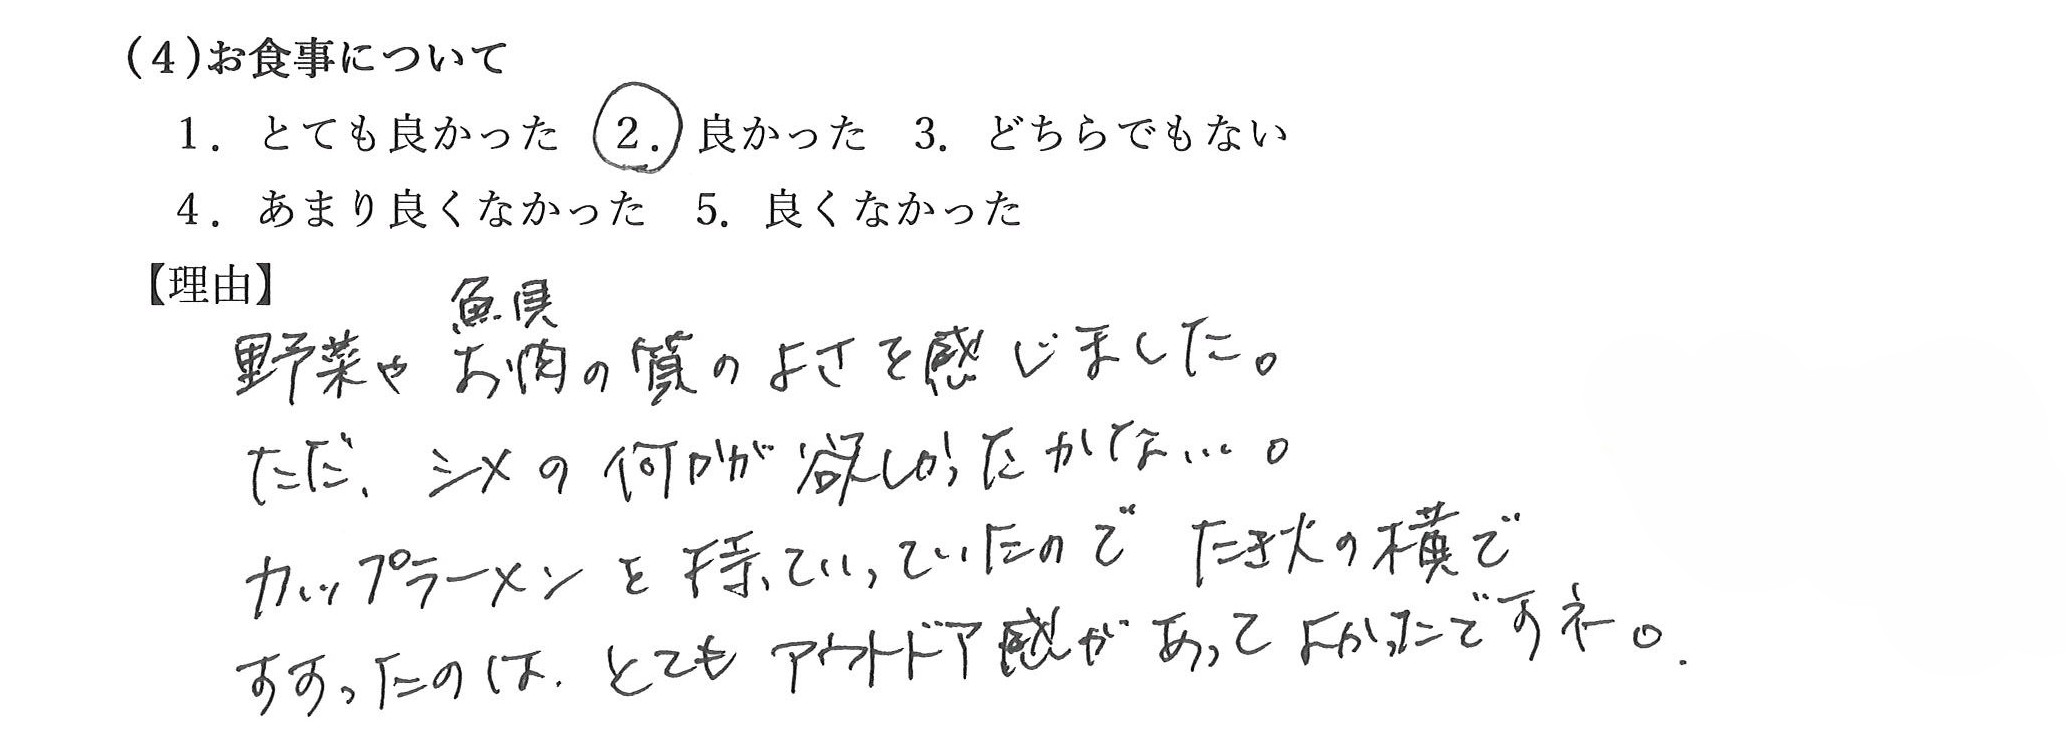 (4)お食事について
1. とても良かった 2. 良かった 3. どちらでもない
4. あまり良くなかった 5. 良くなかった
【理由】
魚貝
野菜や お肉の質のよさを感じました。
ただ、シメの何かが欲しかったかな…。
カップラーメンを持っていっていたので たき火の横で
すすったのは、とてもアウトドア感があってよかったですネー。